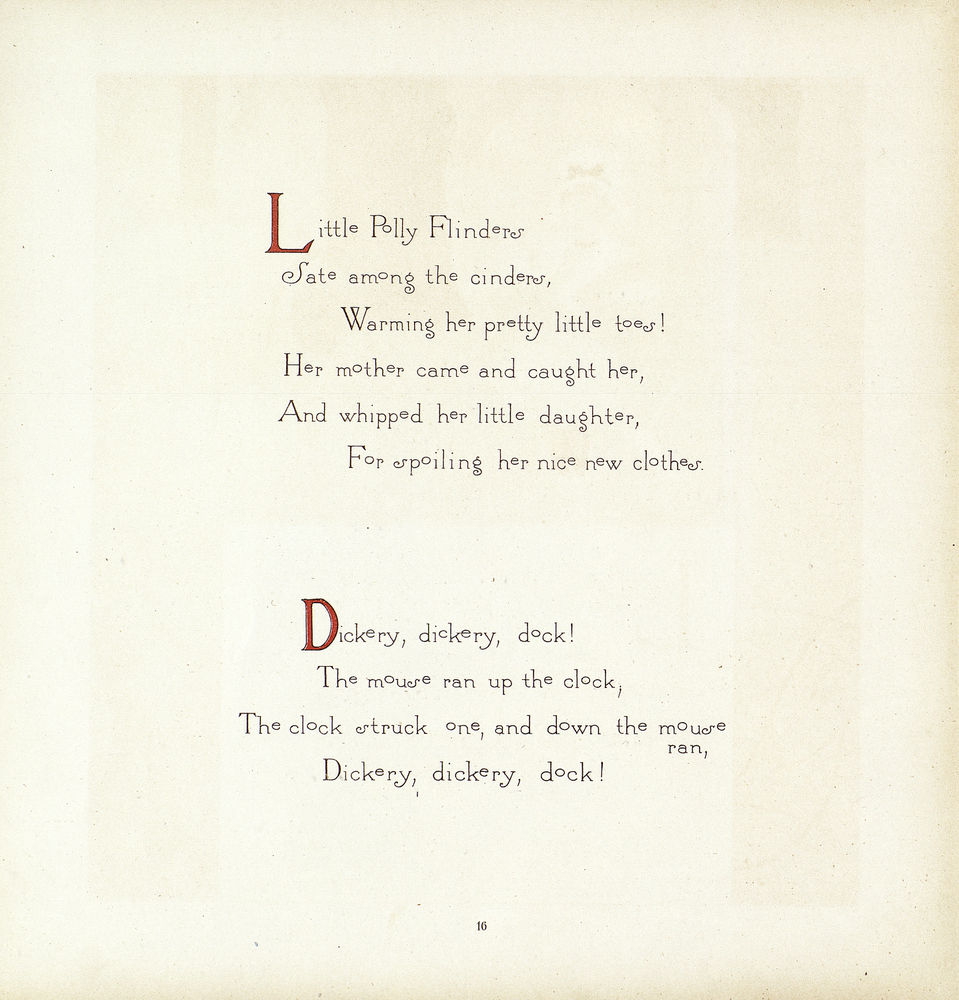 Little Polly Flinders
Sate among the cinders,
Warming her pretty little toes!
Her mother came and caught her,
And whipped her little daughter,
For spoiling her nice new clothes.
Dickery, dickery, dock!
The mouse ran up the clock;
The clock struck one, and down the mouse
ran,
Dickery, dickery, dock!
16